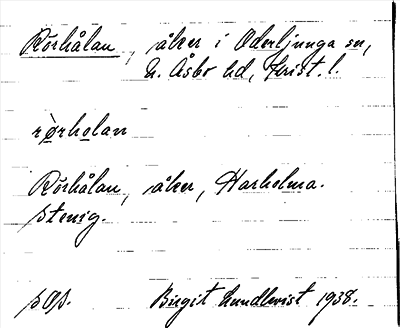 Rörhålan, åker i Oderljunga sn,
N. Åsbo hd, Krist. l.
rørholan
Rörhålan, åker, Harholma.
Stenig.
Birgit Lundkvist 1938.